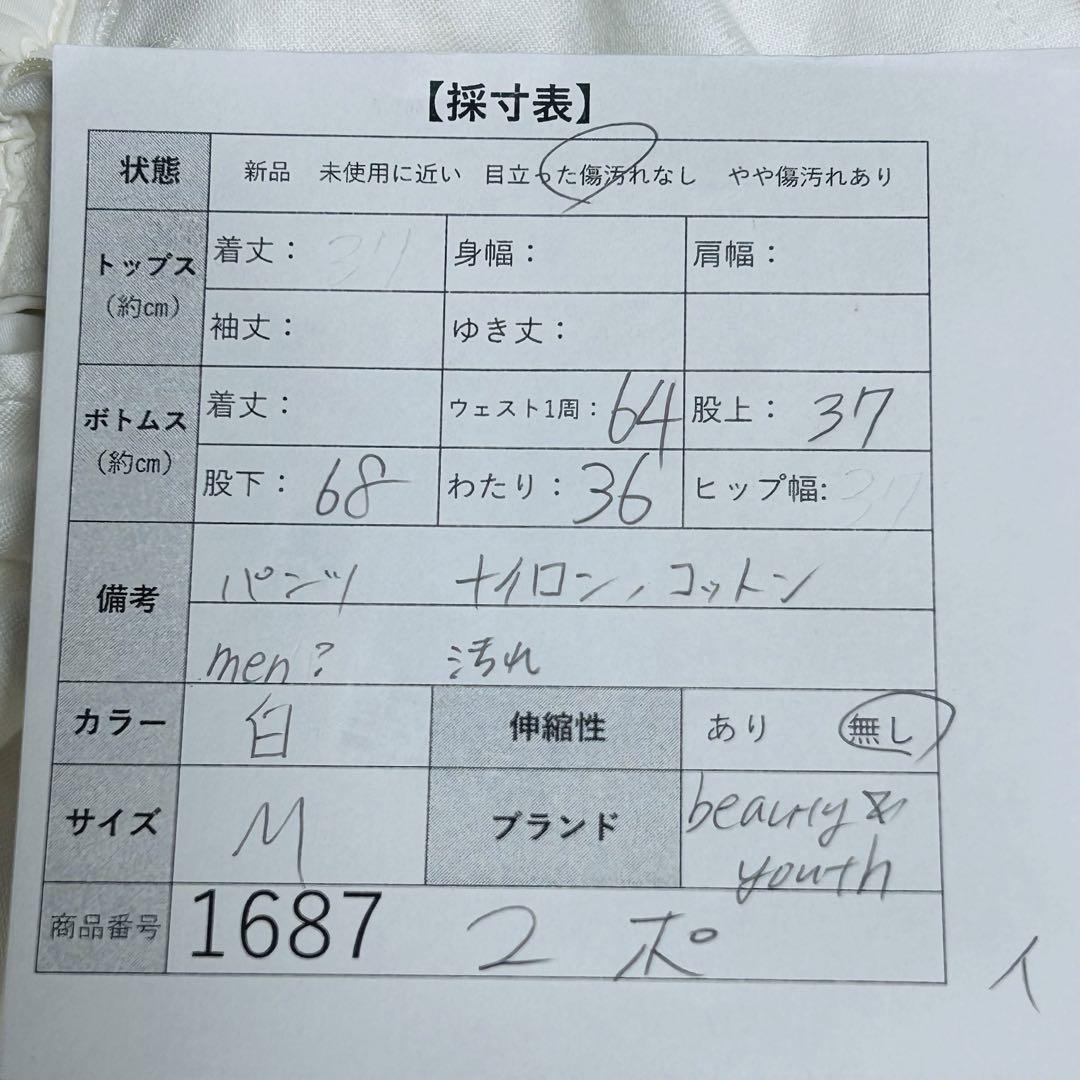 【採寸表】
状態 新品 未使用に近い 目立った傷汚れなし やや傷汚れあり
トップス (約cm)
着丈： 身幅： 肩幅：
袖丈： ゆき丈：
ボトムス (約cm)
着丈： ウェスト1周：64 股上：37
股下：68 わたり：36 ヒップ幅:
備考 パンツ ナイロン、コットン
men? 汚れ
カラー 白 伸縮性 あり 無し
サイズ M ブランド beauty &
youth
商品番号 1687 2 ポ